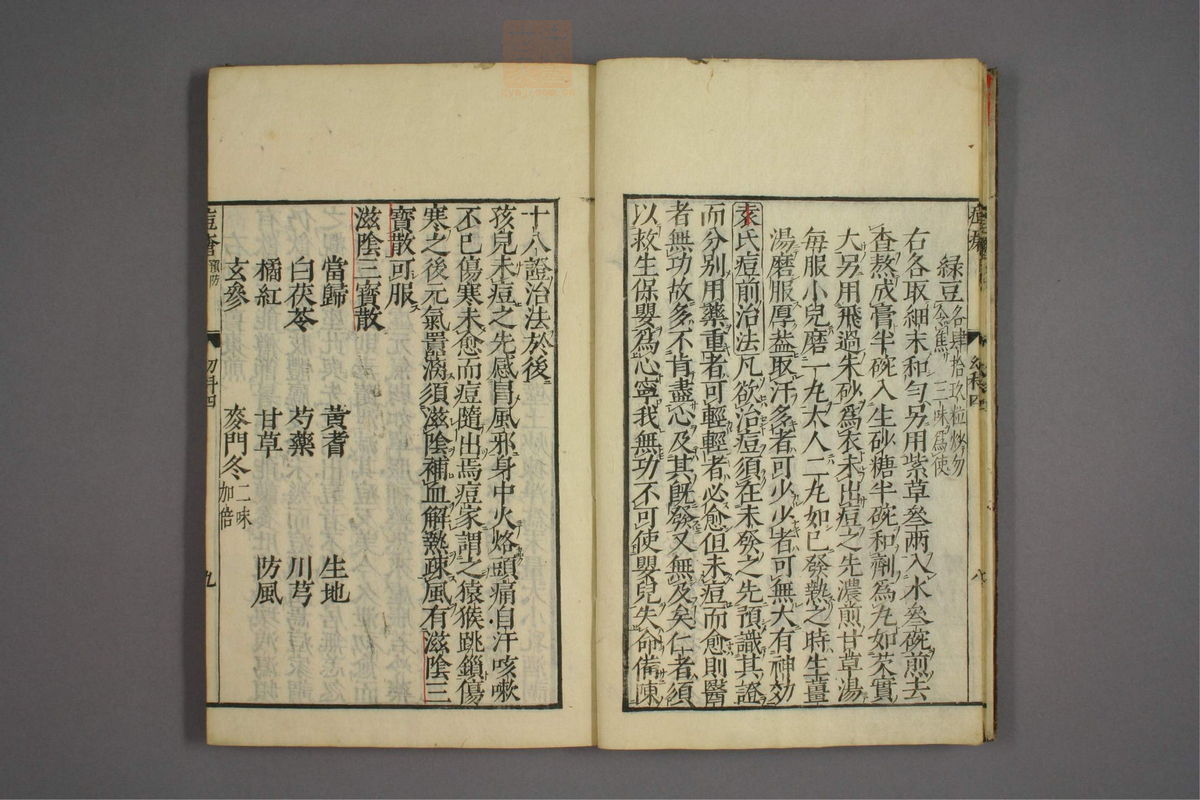 緑豆 各肆拾玖粒炒勿
令焦 三味為使
右各取細末和勻另用紫草叁兩入水叁碗煎去
查熬成膏半碗入生砂糖半碗和劑為丸如芡實
大另用飛過朱砂為衣未出痘之先濃煎甘草湯
每服小兒磨一丸大人二丸如已發熱之時生薑
湯磨服厚葢取汗多者可少少者可無大有神効
袁氏痘前治法凡欲治痘須在未發之先預識其證
而分别用藥重者可輕輕者必愈但未痘而愈則醫
者無功故多不肯盡心及其既發又無及矣仁者須
以救生保嬰為心寧我無功不可使嬰兒失命備陳
八
十八證治法於後
孩兒未痘之先感冒風邪身中火烙頭痛自汗咳嗽
不已傷寒未愈而痘隨出焉痘家謂之猿猴跳鎖傷
寒之後元氣晋滴須滋陰補血解熱疎風有滋陰三
寶散可服
滋陰三寶散
當歸 黄耆 生地
白茯苓 芍藥 川芎
橘紅 甘草 防風
玄參 麥門冬 二味
加倍
痘瘡 預防 幼科四 九